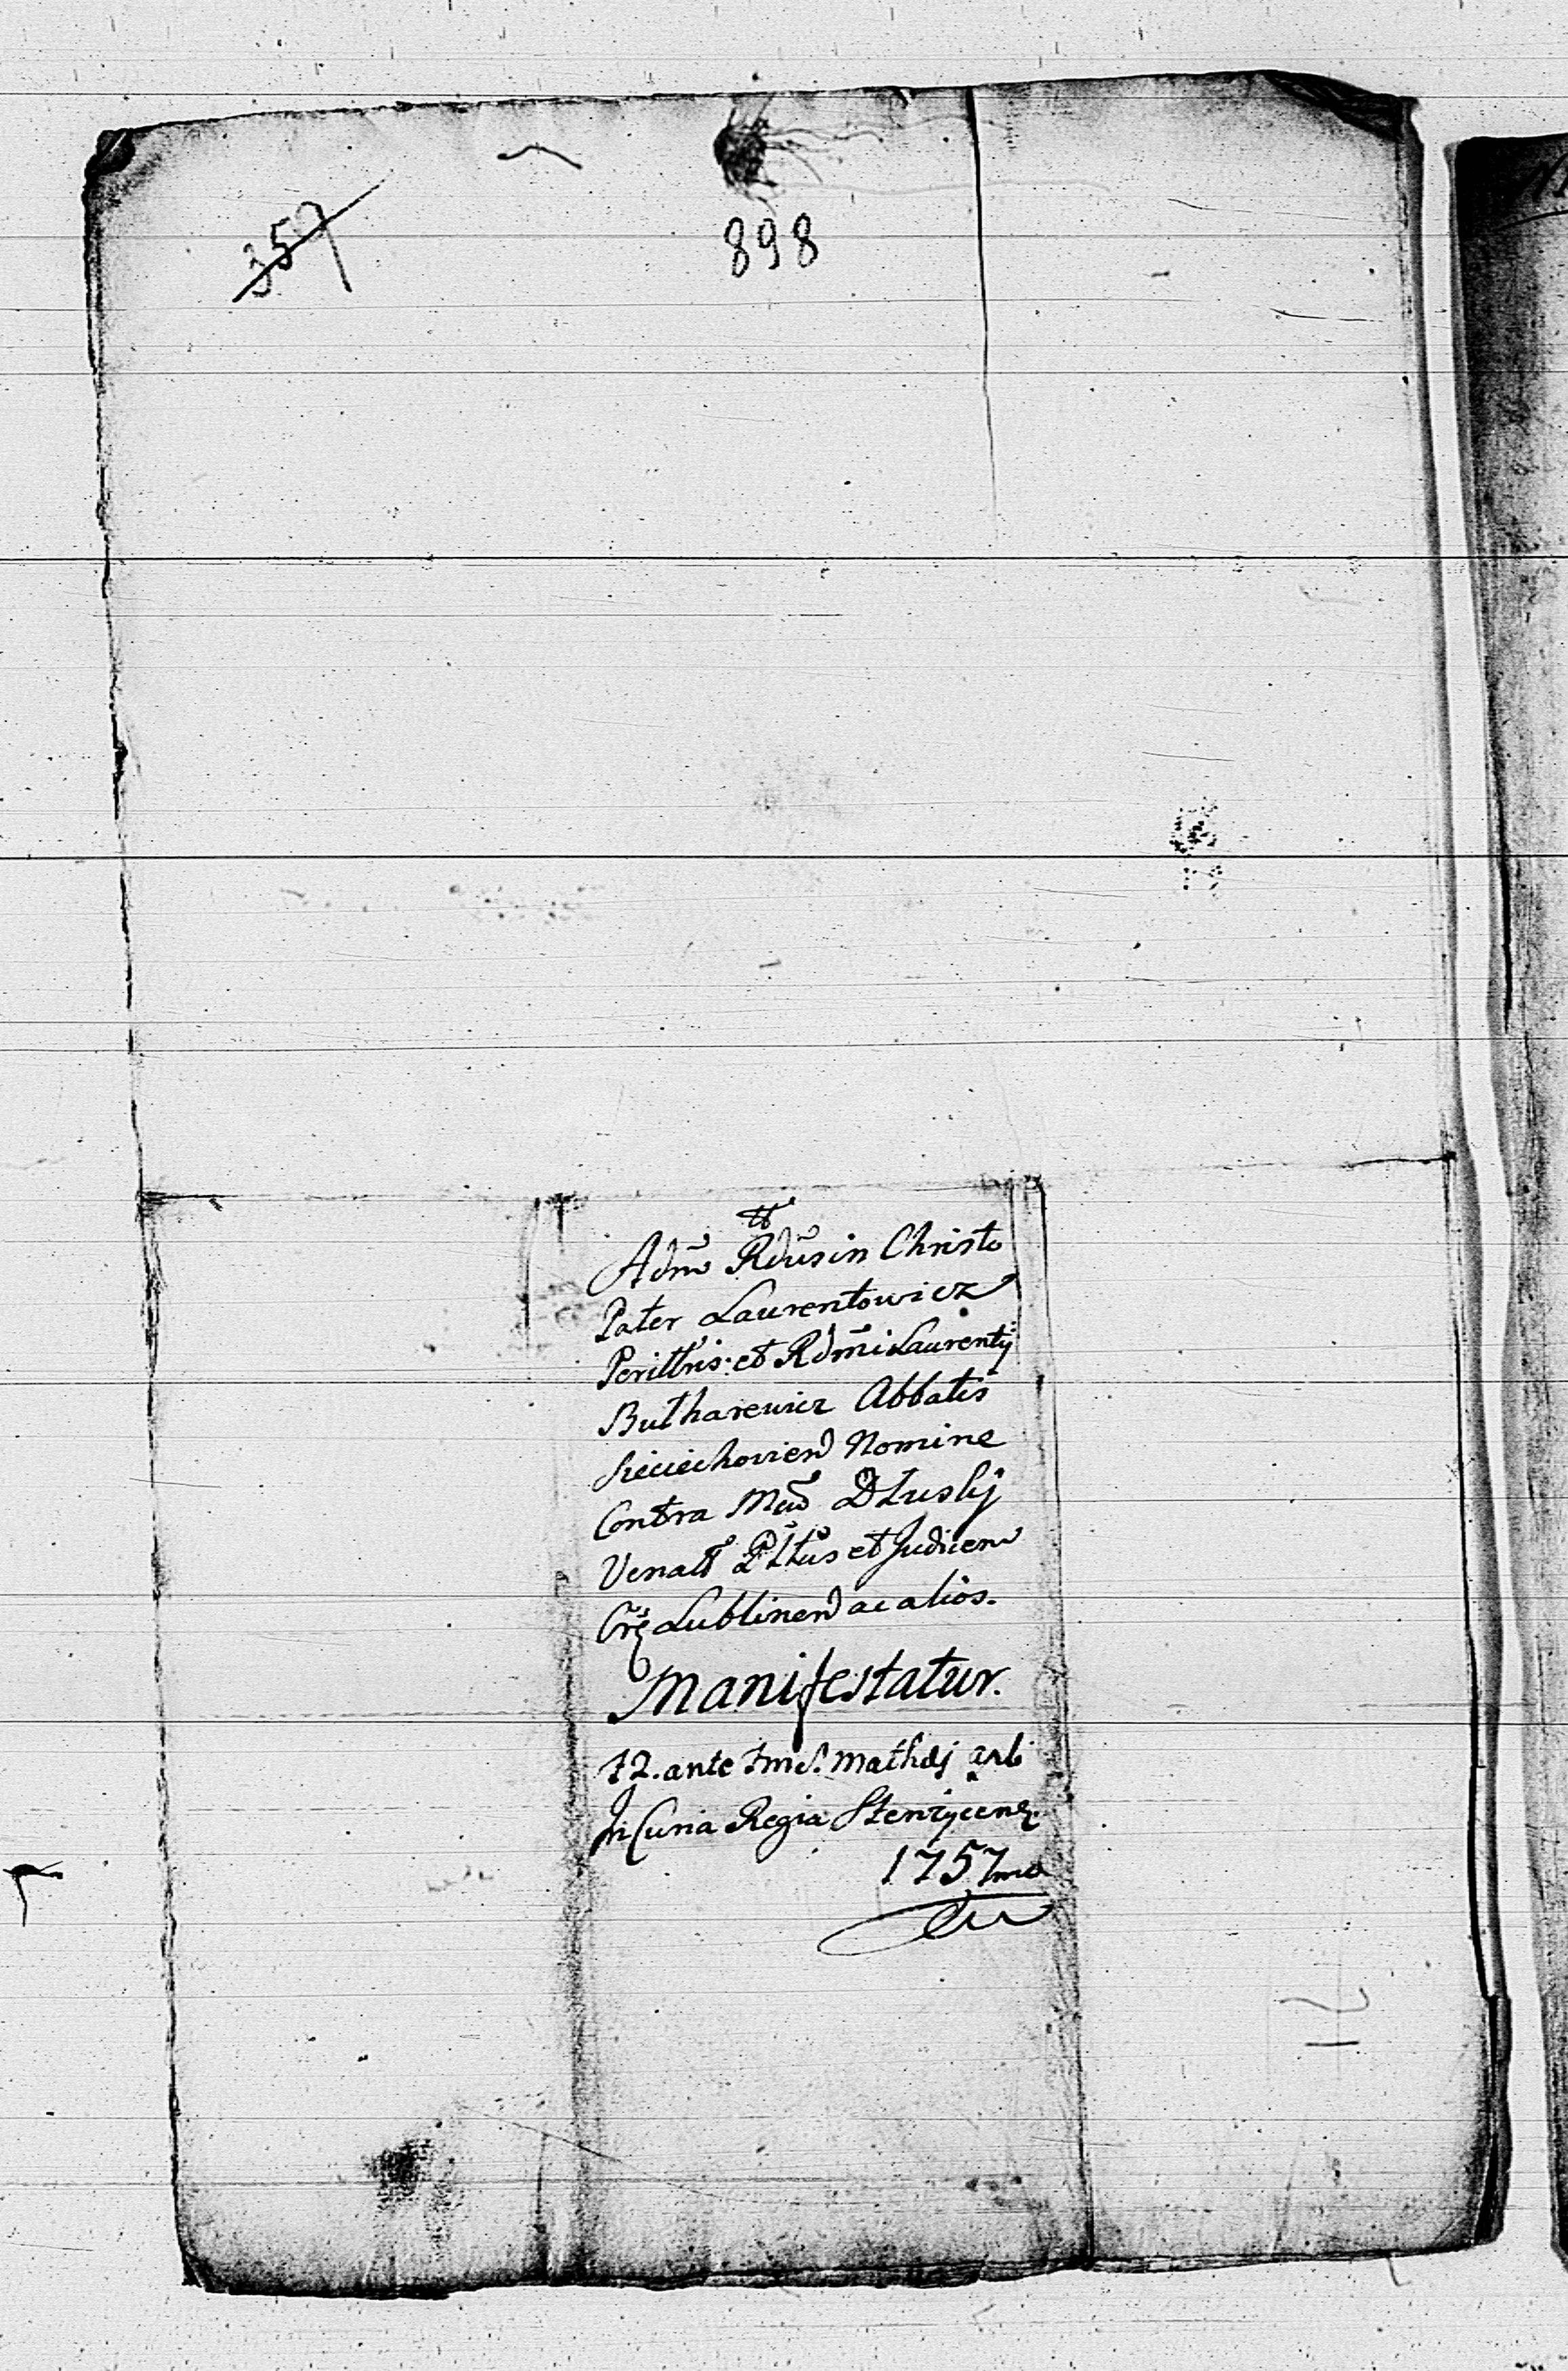 357
898
Adm̃ Rdūs in Christo
Pater Laurentowicz
Perillris: et Rdm̃i Laurentij
Butharewicz Abbatis
Sieciechovien Nomine
Contra Dłuskj
Venatt et Judicem
Lublinen ac alios.
Manifestatur.
ante S. Mathæj
In Curia Regia Stenzycens
1757mo